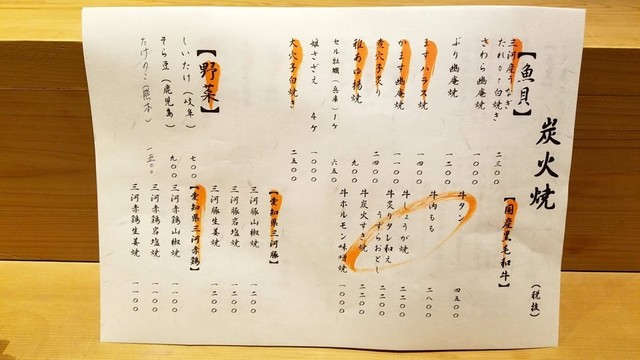 炭火焼
(税抜)
【魚貝】
三河産うなぎ
たれor白焼き 二三〇〇
さわら幽庵焼 一〇〇〇
ぶり幽庵焼 一二〇〇
ますハラス焼 一四〇〇
かます幽庵焼 一一〇〇
煮穴子炙り 二四〇〇
稚あゆ楊焼 九〇〇
セル牡蠣(兵庫)1ケ 六五〇
姫さざえ 4ケ 一〇〇〇
大穴子白焼き 二五〇〇
【野菜】
しいたけ(岐阜) 七〇〇
そら豆(鹿児島) 九〇〇
たけのこ(熊本) 一五〇〇
【国産黒毛和牛】
牛タン 四五〇〇
牛内もも 二八〇〇
牛しょうが焼 二二〇〇
牛炙りタレ和え
うすらおとし 二二〇〇
牛炭火すき焼 二二〇〇
牛ホルモン味噌焼 一〇〇〇
【愛知県三河豚】
三河豚山椒焼 一二〇〇
三河豚岩塩焼 一二〇〇
三河豚生姜焼 一二〇〇
【愛知県三河赤鶏】
三河赤鶏山椒焼 一一〇〇
三河赤鶏岩塩焼 一一〇〇
三河赤鶏生姜焼 一一〇〇